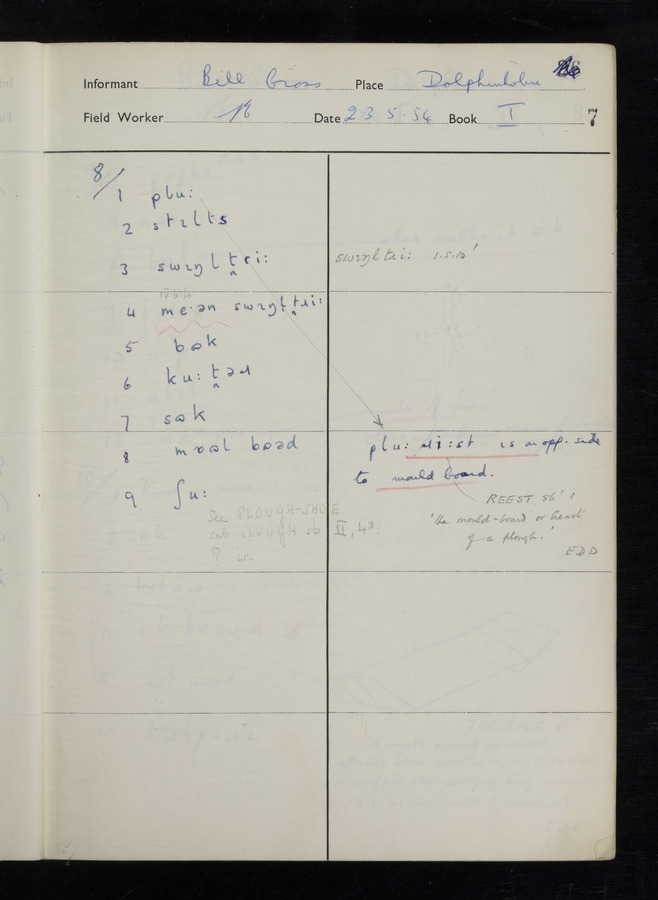 Informant Bill Cross Place Dolphinholme
Field Worker Date 23.5.54 Book I 7
8/
1 plu:
2 stɪlts
3 swɪŋl t̪ri: swɪŋl tri: 1.5.10'
4 me·ən swɪŋl t̪ɹi:
5 bək
6 ku:t̪əɹ
7 sɒk
8 mɒəl bɒəd plu: ɹi:st is on opp. side
to mould board.
9 ʃu: REEST sb' 1
See PLOUGH-SHOE 'the mould-board or breast
sub PLOUGH sb II, 4³. of a plough.'
EDD